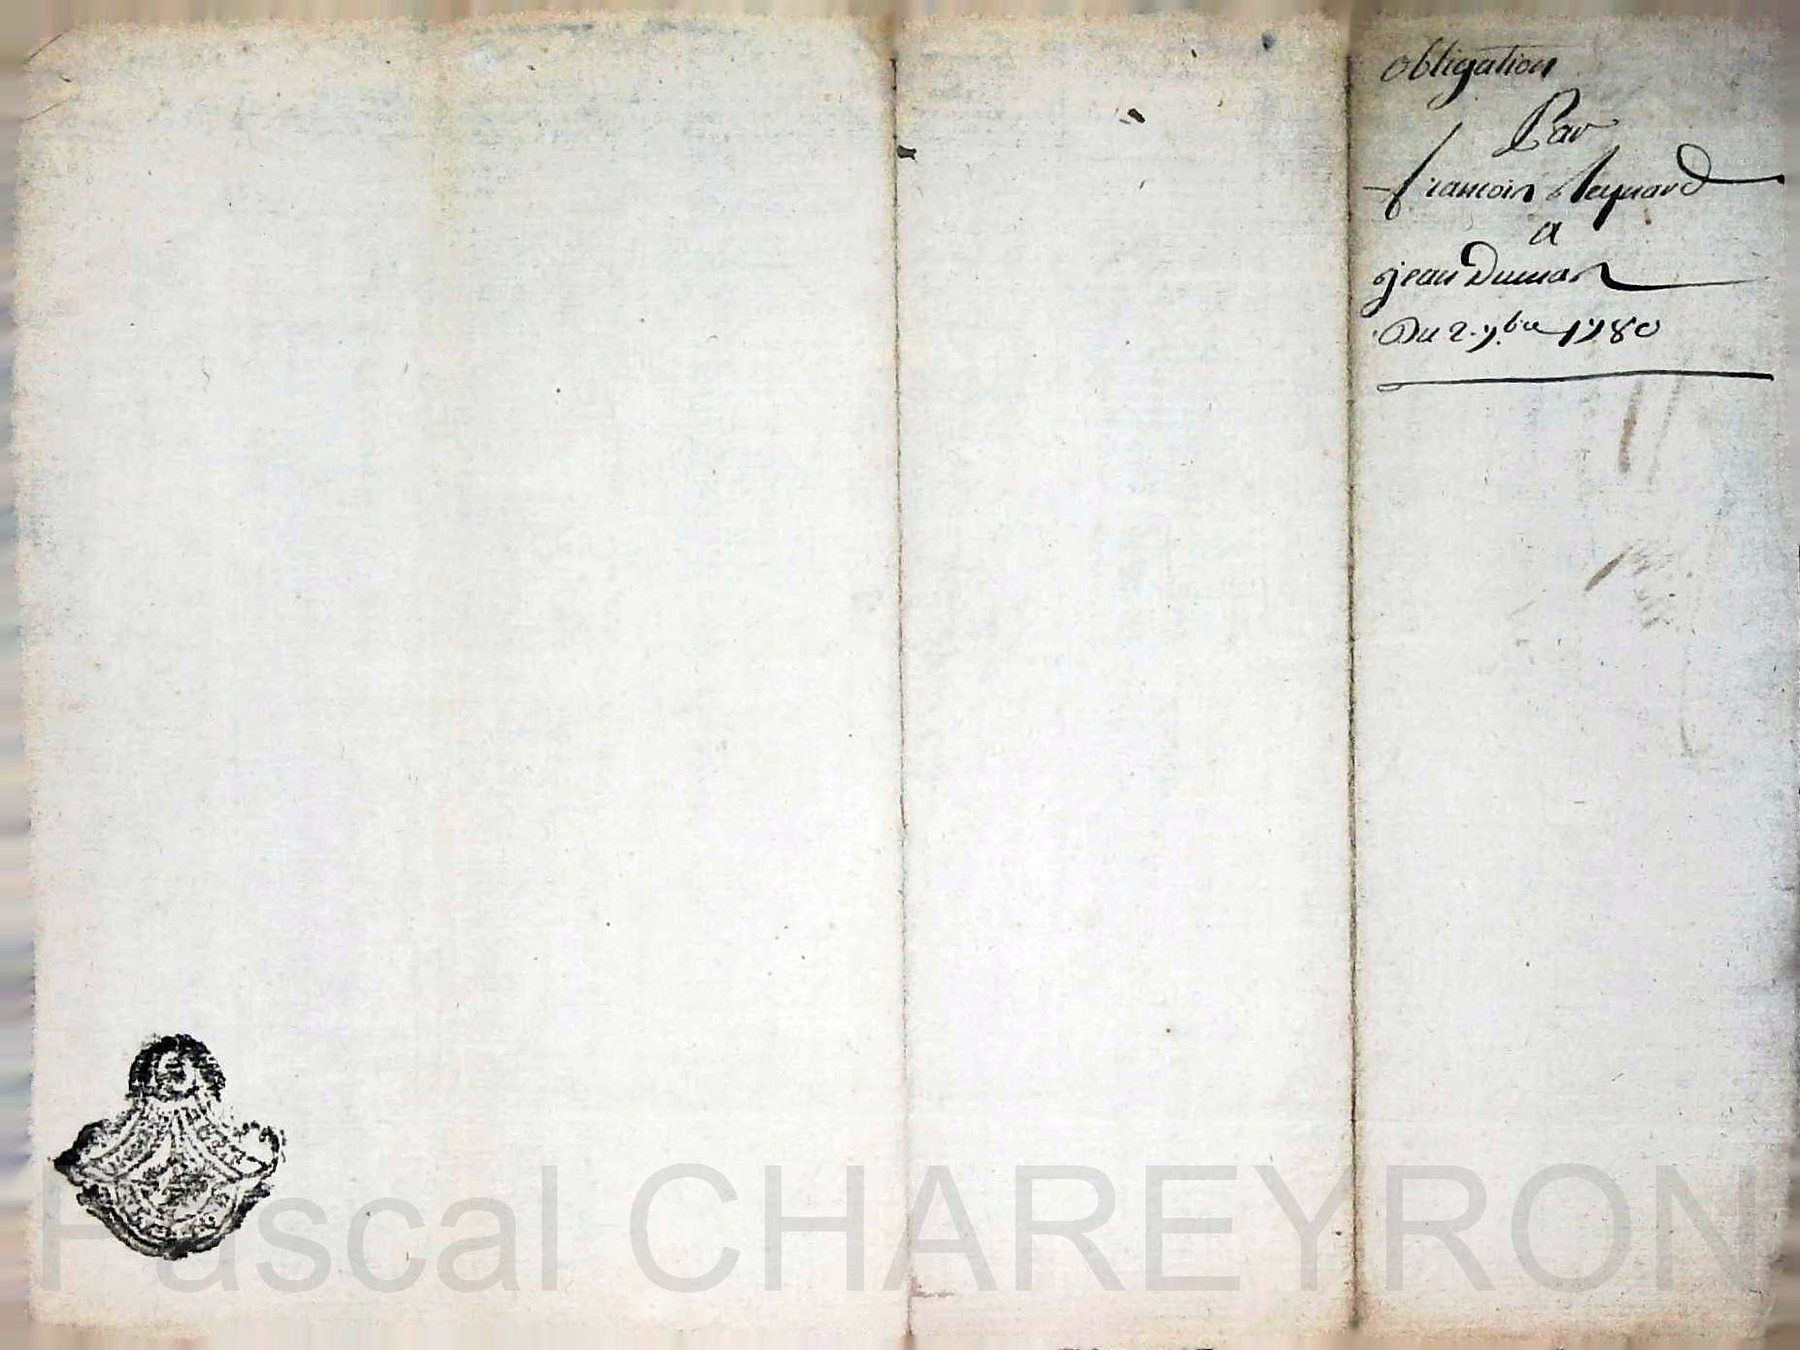 obligation
Par
francois Reynard
a
jean Dumas
Du 2. 7.bre 1780
Pascal CHAREYRON